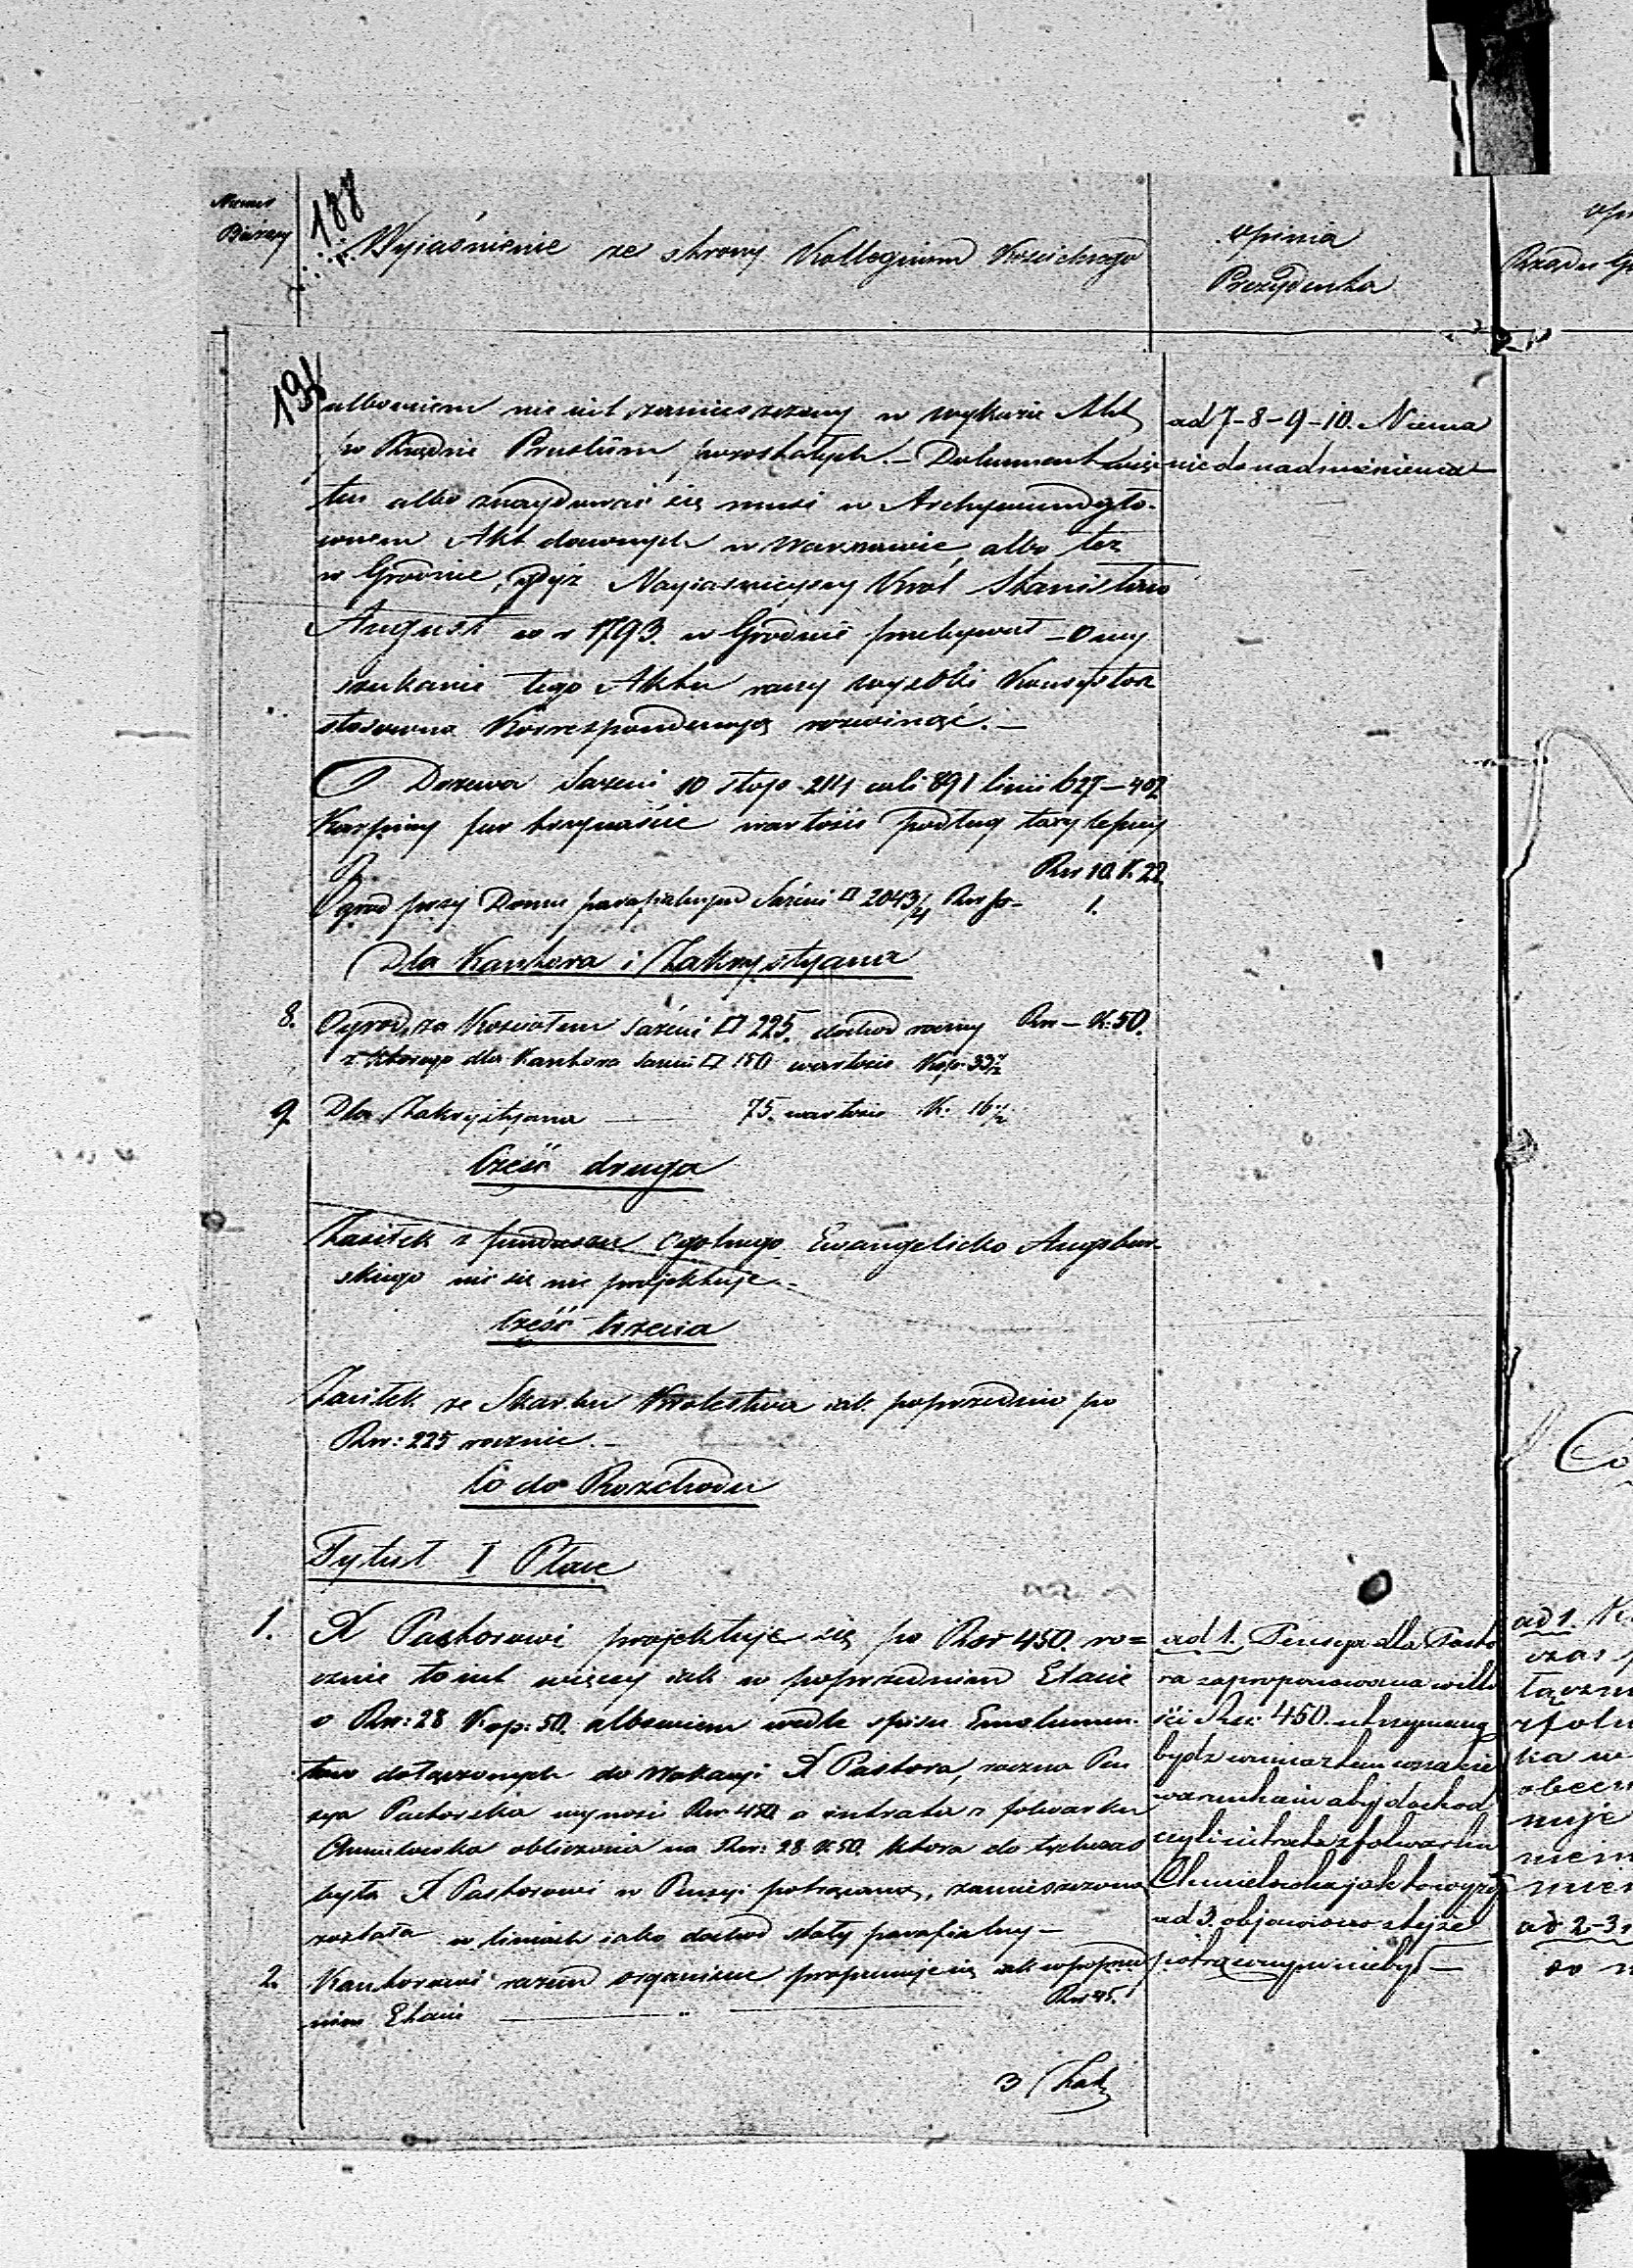 Numer
Bieżący
188
Wyiaśnienie ze strony Kollegium Kościelnego
Opinia
Prezydenta
191
albowiem nie iest zamieszczony w wykazie Akt
po Rządzie Pruskim pozostałych. – Dokument więc
ten albo znaydować się musi w Archiwum Głó-
wnem Akt dawnych w Warszawie, albo też
w Grodnie, gdyż Nayiaśnieyszy Król Stanisław
August w r 1793. w Grodnie przebywał – O wy
szukanie tego Aktu raczy wysoki Konsystorz
stosowną Korrespondencyą rozwinąć. –
Drzewa Sążeni 10 stop 211 cali 891 linii 627 – 402
Karpiny fur trzynaście wartości podług taxy lepszey
Rsr 10. K 22.
Ogrod przy Domu parafialnym Sążeni □ 204 3/4 Rsr 1.
Dla Kantora i Zakrystyana
8. Ogrod za Kościołem Sążeni □ 225. dochod roczny Rsr – K. 50.
z ktorego dla Kantora Sążeni □ 150 wartości Kop. 33 1/2
9. Dla Zakrystyana — 75. wartości K. 16 1/2
Część druga
Zasiłek z funduszu Ogolnego Ewangelicko Augsbur-
skiego nic się nie projektuje –
Część trzecia
Zasiłek ze Skarbu Krolestwa iak poprzednio po
Rsr: 225 rocznie. –
Co do Rozchodu
Tytuł I Płace
1. X Pastorowi projektuje się po Rsr 450. ro=
cznie to iest więcey iak w poprzednim Etacie
o Rsr: 28 Kop: 50. albowiem wedle spisu Emolumen-
tow dołączonych do Wokacyi X Pastora, roczna Pen
sya Pastorska wynosi Rsr 450 a intrata z folwarku
Chmielowska obliczona na Rsr: 28 K 50. ktora do tychczas
była X Pastorowi w Pensyi potrącana, zamieszczona
została w liniach iako dochod stały parafialny –
2. Kantorowi razem organiście proponuje się iak w poprzed
nim Etacie — " — Rsr 45.
3 Zak
ad 7-8-9-10. Niema
nic do nadmienienia –
ad 1. Pensya dla Pasto
ra zaproponowana w ilo
ści Rsr: 450. utrzymaną
bydz winna z tem wszakże
warunkiem aby dochod
czyli intrata z folwarku
Chmielowska jak to wyżej
ad 3. objawiono z tejże
potrąconym niebył –
ad 1.
ad 2-3